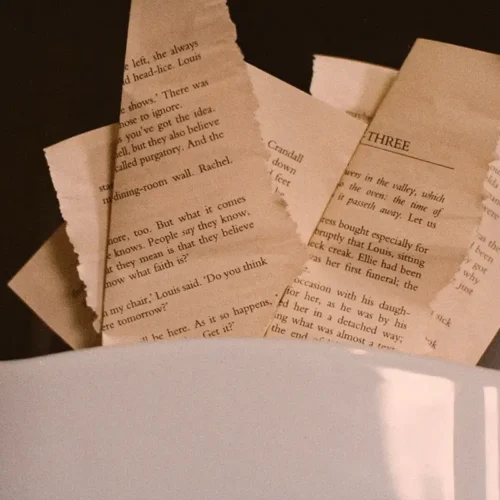 left, she always
head-lice. Louis
shows.' There was
to ignore.
you've got the idea.
but they also believe
called purgatory. And the
dining-room wall. Rachel.
too. But what it comes
knows. People say they know,
they mean is that they believe
know what faith is?'
my chair,' Louis said. 'Do you think
tomorrow?'
be here. As it so happens,
Get it?'
Crandall
down
feet
THREE
in the valley, which
the oven: the time of
it passeth away. Let us
bought especially for
that Louis, sitting
creak. Ellie had been
her first funeral; the
occasion with his daugh-
for her, as he was by his
her in a detached way;
what was almost a
the end
why
just
sick